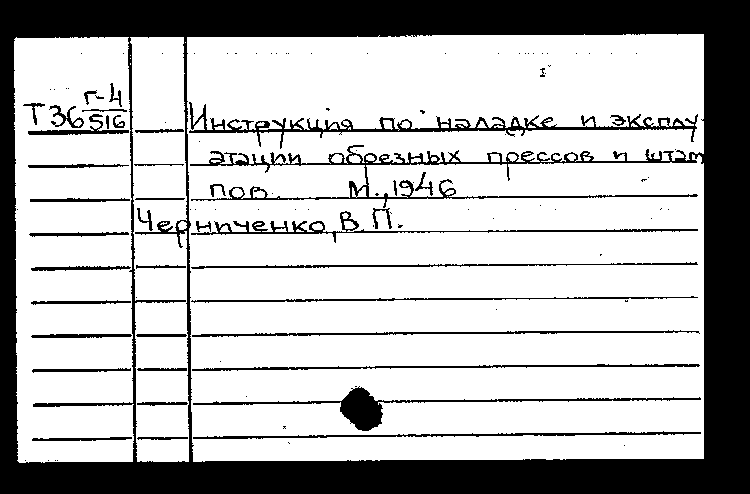 Т36 г-4/516 Инструкция по наладке и эксплу
атации обрезных прессов и штам
пов. М., 1946
Черниченко, В П.